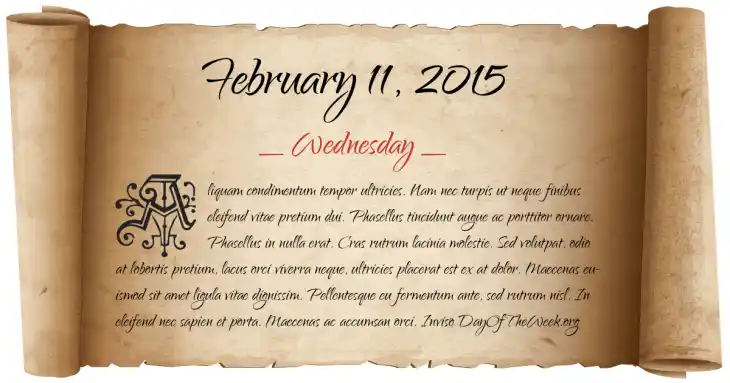 February 11, 2015
— Wednesday —
Aliquam condimentum tempor ultricies. Nam nec turpis ut neque finibus
eleifend vitae pretium dui. Phasellus tincidunt augue ac porttitor ornare.
Phasellus in nulla erat. Cras rutrum lacinia molestie. Sed volutpat, odio
at lobortis pretium, lacus orci viverra neque, ultricies placerat est ex at dolor. Maecenas eu-
ismod sit amet ligula vitae dignissim. Pellentesque eu fermentum ante, sed rutrum nisl. In
eleifend nec sapien et porta. Maecenas ac accumsan orci. Invise DayOfTheWeek.org